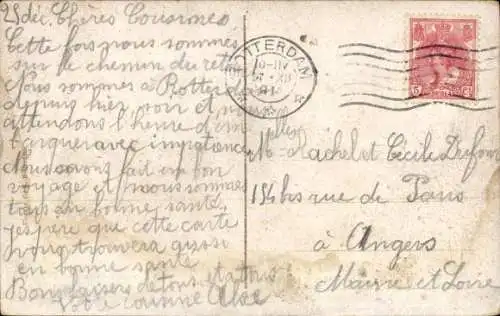 25 déc. Chères Cousines
Cette fois nous sommes
sur le chemin du
Nous sommes à Rotter
depuis hier soir et n
attendons l'heure d'em
barquer avec impatience
Nous avons fait un bon
voyage et nous sommes
tous en bonne santé
j'espère que cette carte
vous trouvera aussi
en bonne santé
Bons baisers de tous et à tous
Votre cousine
ROTTERDAM
5 CT
Melles Rachel et Cécile
154 bis rue de Paris
à Angers
Maine et Loire